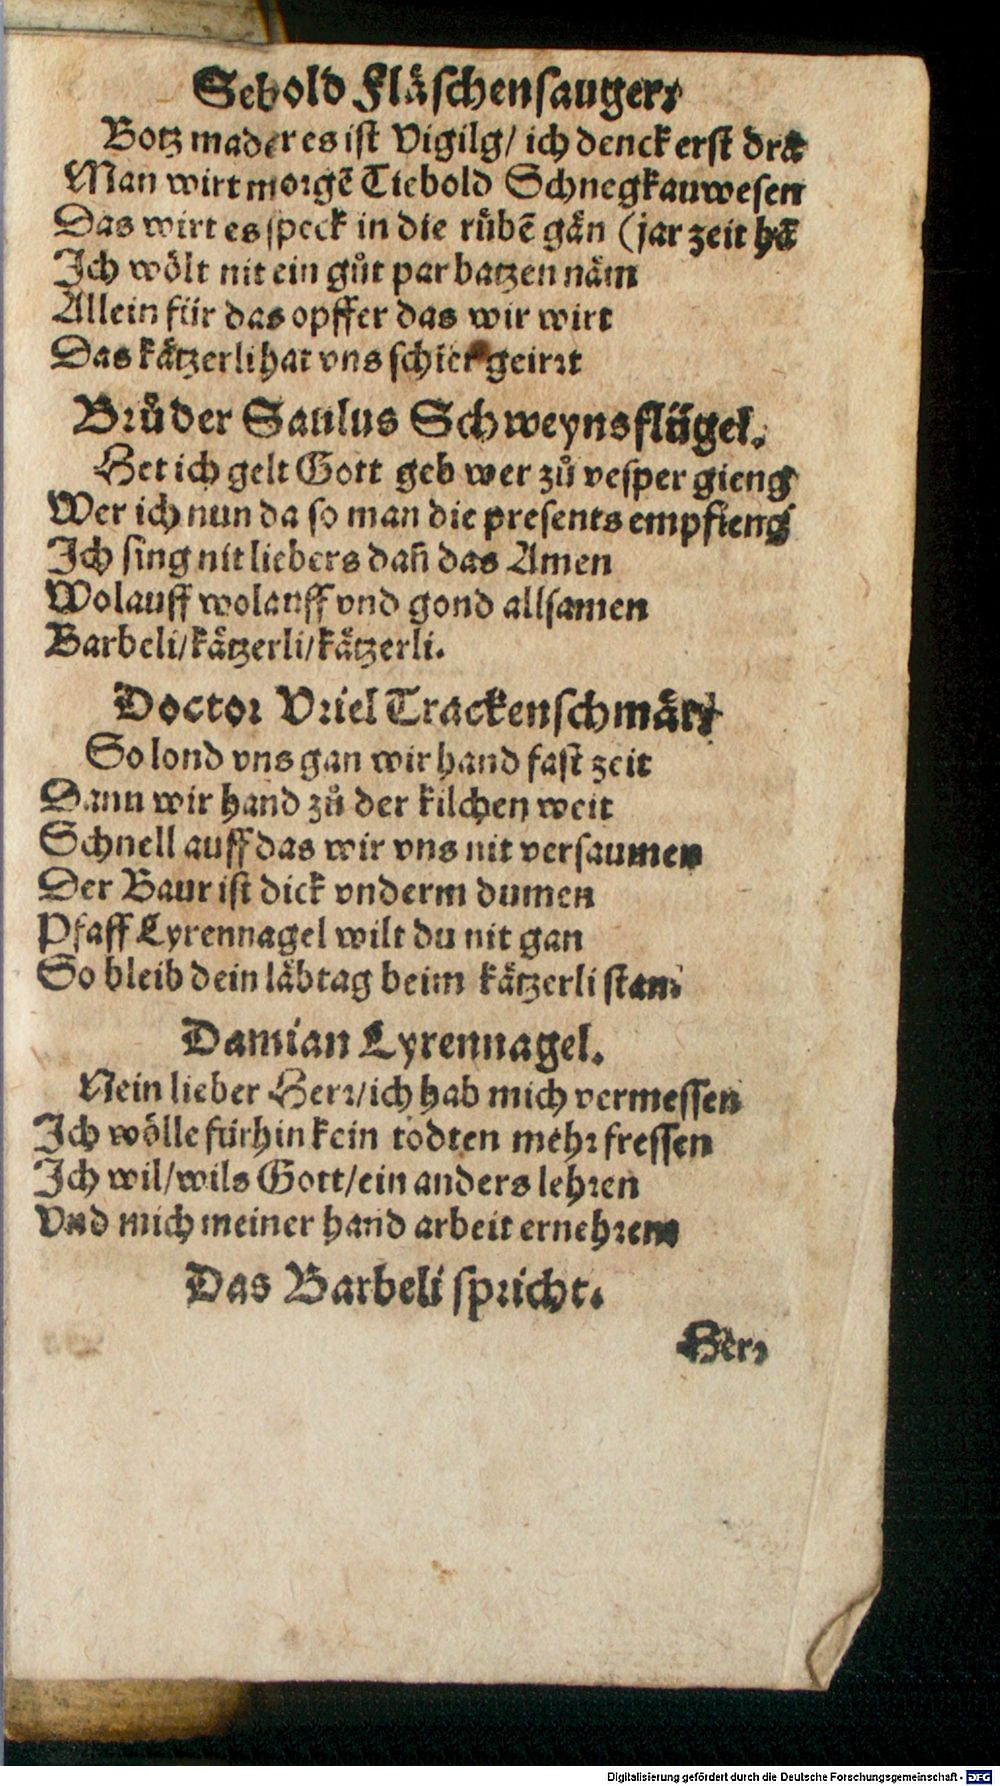 Sebold Fläschensauger.
Botz mader es ist Vigilg/ ich denck erst drã
Man wirt morgẽ Tiebold Schnegkauwesen
Das wirt es speck in die rübẽ gän (jar zeit hã
Ich wölt nit ein gůt par batzen näm
Allein für das opffer das wir wirt
Das kätzerli hat vns schier geirrt
Brůder Saulus Schweynsflügel.
Het ich gelt Gott geb wer zů vesper gieng
Wer ich nun da so man die presents empfieng
Ich sing nit liebers dañ das Amen
Wolauff wolauff vnd gond allsamen
Barbeli/kätzerli/kätzerli.
Doctor Vriel Trackenschmär.
So lond vns gan wir hand fast zeit
Dann wir hand zů der kilchen weit
Schnell auff das wir vns nit versaumen
Der Baur ist dick vnderm dumen
Pfaff Lyrennagel wilt du nit gan
So bleib dein läbtag beim kätzerli stan.
Damian Lyrennagel.
Nein lieber Herr/ich hab mich vermessen
Ich wölle fürhin kein todten mehr fressen
Ich wil/wils Gott/ein anders lehren
Vnd mich meiner hand arbeit ernehren
Das Barbeli spricht.
Her,
Digitalisierung gefördert durch die Deutsche Forschungsgemeinschaft - DFG